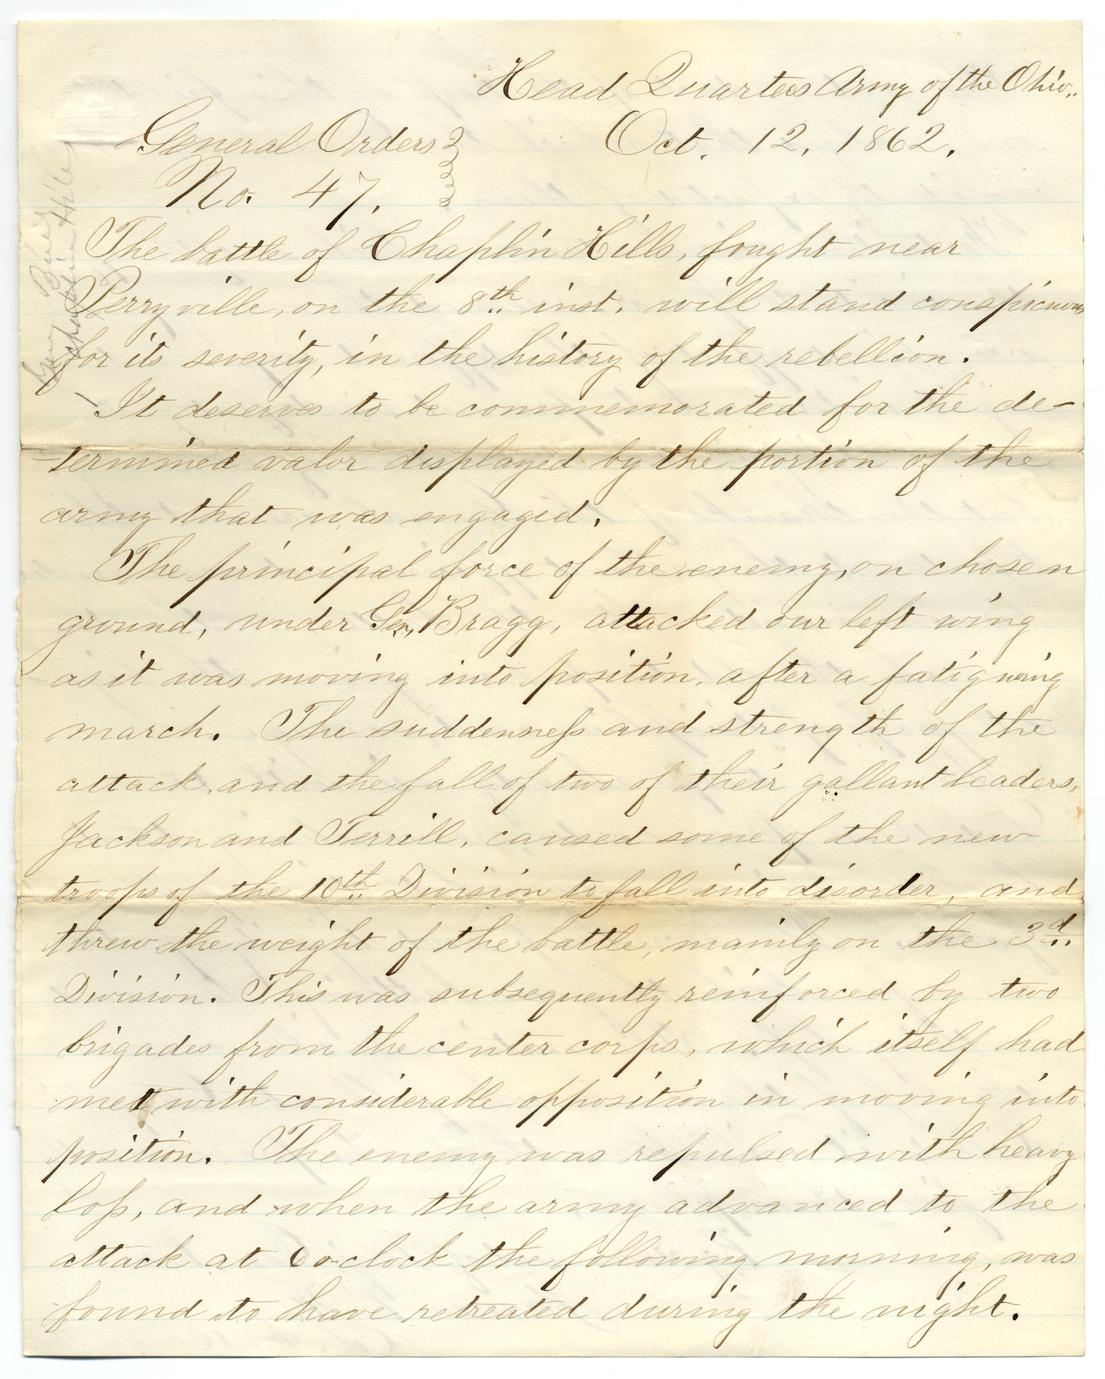 Head Quarters Army of the Ohio.
General Orders
Oct. 12, 1862.
No. 47.
The battle of Chaplin Hills, fought near
Perryville, on the 8th inst. will stand conspicuous
for its severity, in the history of the rebellion.
It deserves to be commemorated for the de-
termined valor displayed by the portion of the
army that was engaged.
The principal force of the enemy, on chosen
ground, under Gen. Bragg, attacked our left wing
as it was moving into position, after a fatigueing
march. The suddenness and strength of the
attack, and the fall of two of their gallant leaders,
Jackson and Terrill, caused some of the new
troops of the 10th Division to fall into disorder, and
threw the weight of the battle, mainly on the 3d
Division. This was subsequently reinforced by two
brigades from the center corps, which itself had
met with considerable opposition in moving into
position. The enemy was repulsed with heavy
loss, and when the army advanced to the
attack at 6 o-clock the following morning, was
found to have retreated during the night.